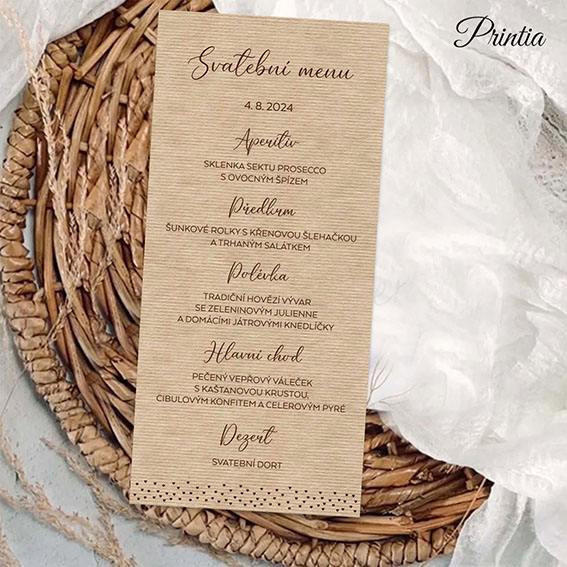 Printia
Svatební menu
4. 8. 2024
Aperitiv
SKLENKA SEKTU PROSECCO
S OVOCNÝM ŠPÍZEM
Předkrm
ŠUNKOVÉ ROLKY S KŘENOVOU ŠLEHAČKOU
A TRHANÝM SALÁTKEM
Polévka
TRADIČNÍ HOVĚZÍ VÝVAR
SE ZELENINOVÝM JULIENNE
A DOMÁCÍMI JÁTROVÝMI KNEDLÍČKY
Hlavní chod
PEČENÝ VEPŘOVÝ VÁLEČEK
S KAŠTANOVOU KRUSTOU,
CIBULOVÝM KONFITEM A CELEROVÝM PYRÉ
Dezert
SVATEBNÍ DORT